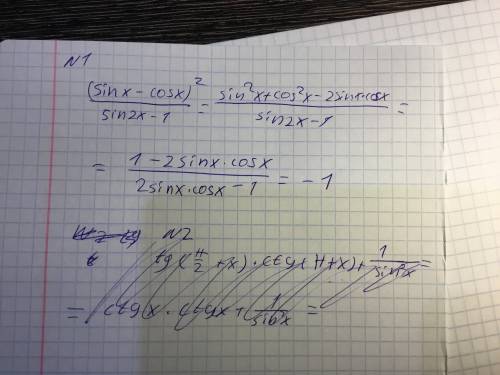 N1
(sinx - cosx)² / sin2x - 1 = sin²x + cos²x - 2sinx·cosx / sin2x - 1 =
= 1 - 2sinx·cosx / 2sinx·cosx - 1 = -1
N2
tg(π/2 + x) · ctg(π + x) + 1/sin²x =
= ctgx · ctgx + 1/sin²x =